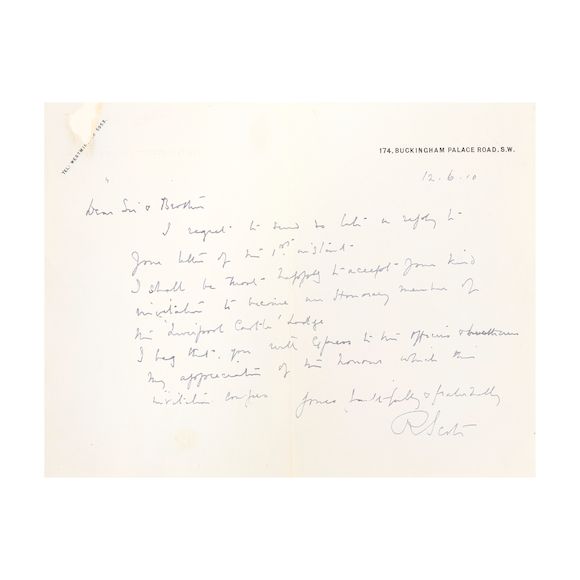 TEL. WESTMIN 5953.
174, BUCKINGHAM PALACE ROAD, S.W.
12.6.10
Dear Sir & Brother
I regret to send so late a reply to
your letter of the 1st instant.
I shall be most happy to accept your kind
invitation to become an Honorary member of
the 'Liverpool Castle' Lodge
I beg that you will express to the officers & brethren
my appreciation of the honour which this
invitation confers
Yours faithfully & fraternally
RScott